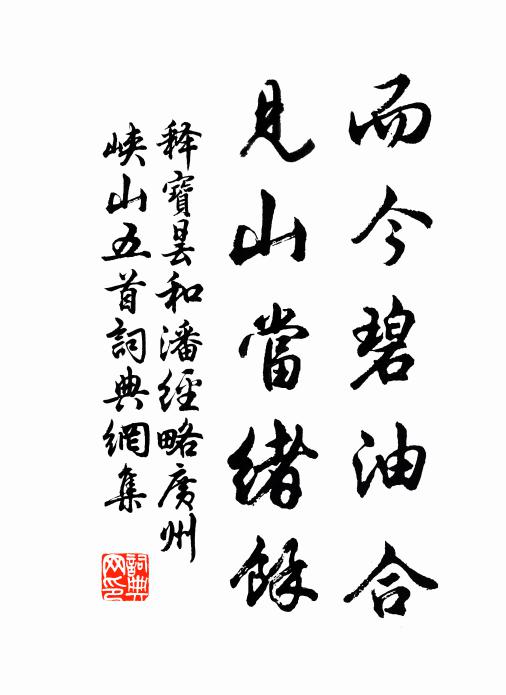 而今碧油合
見山當緒餘
释寶曇和潘經略廣州
峽山五首詞典網集
詞典
网印